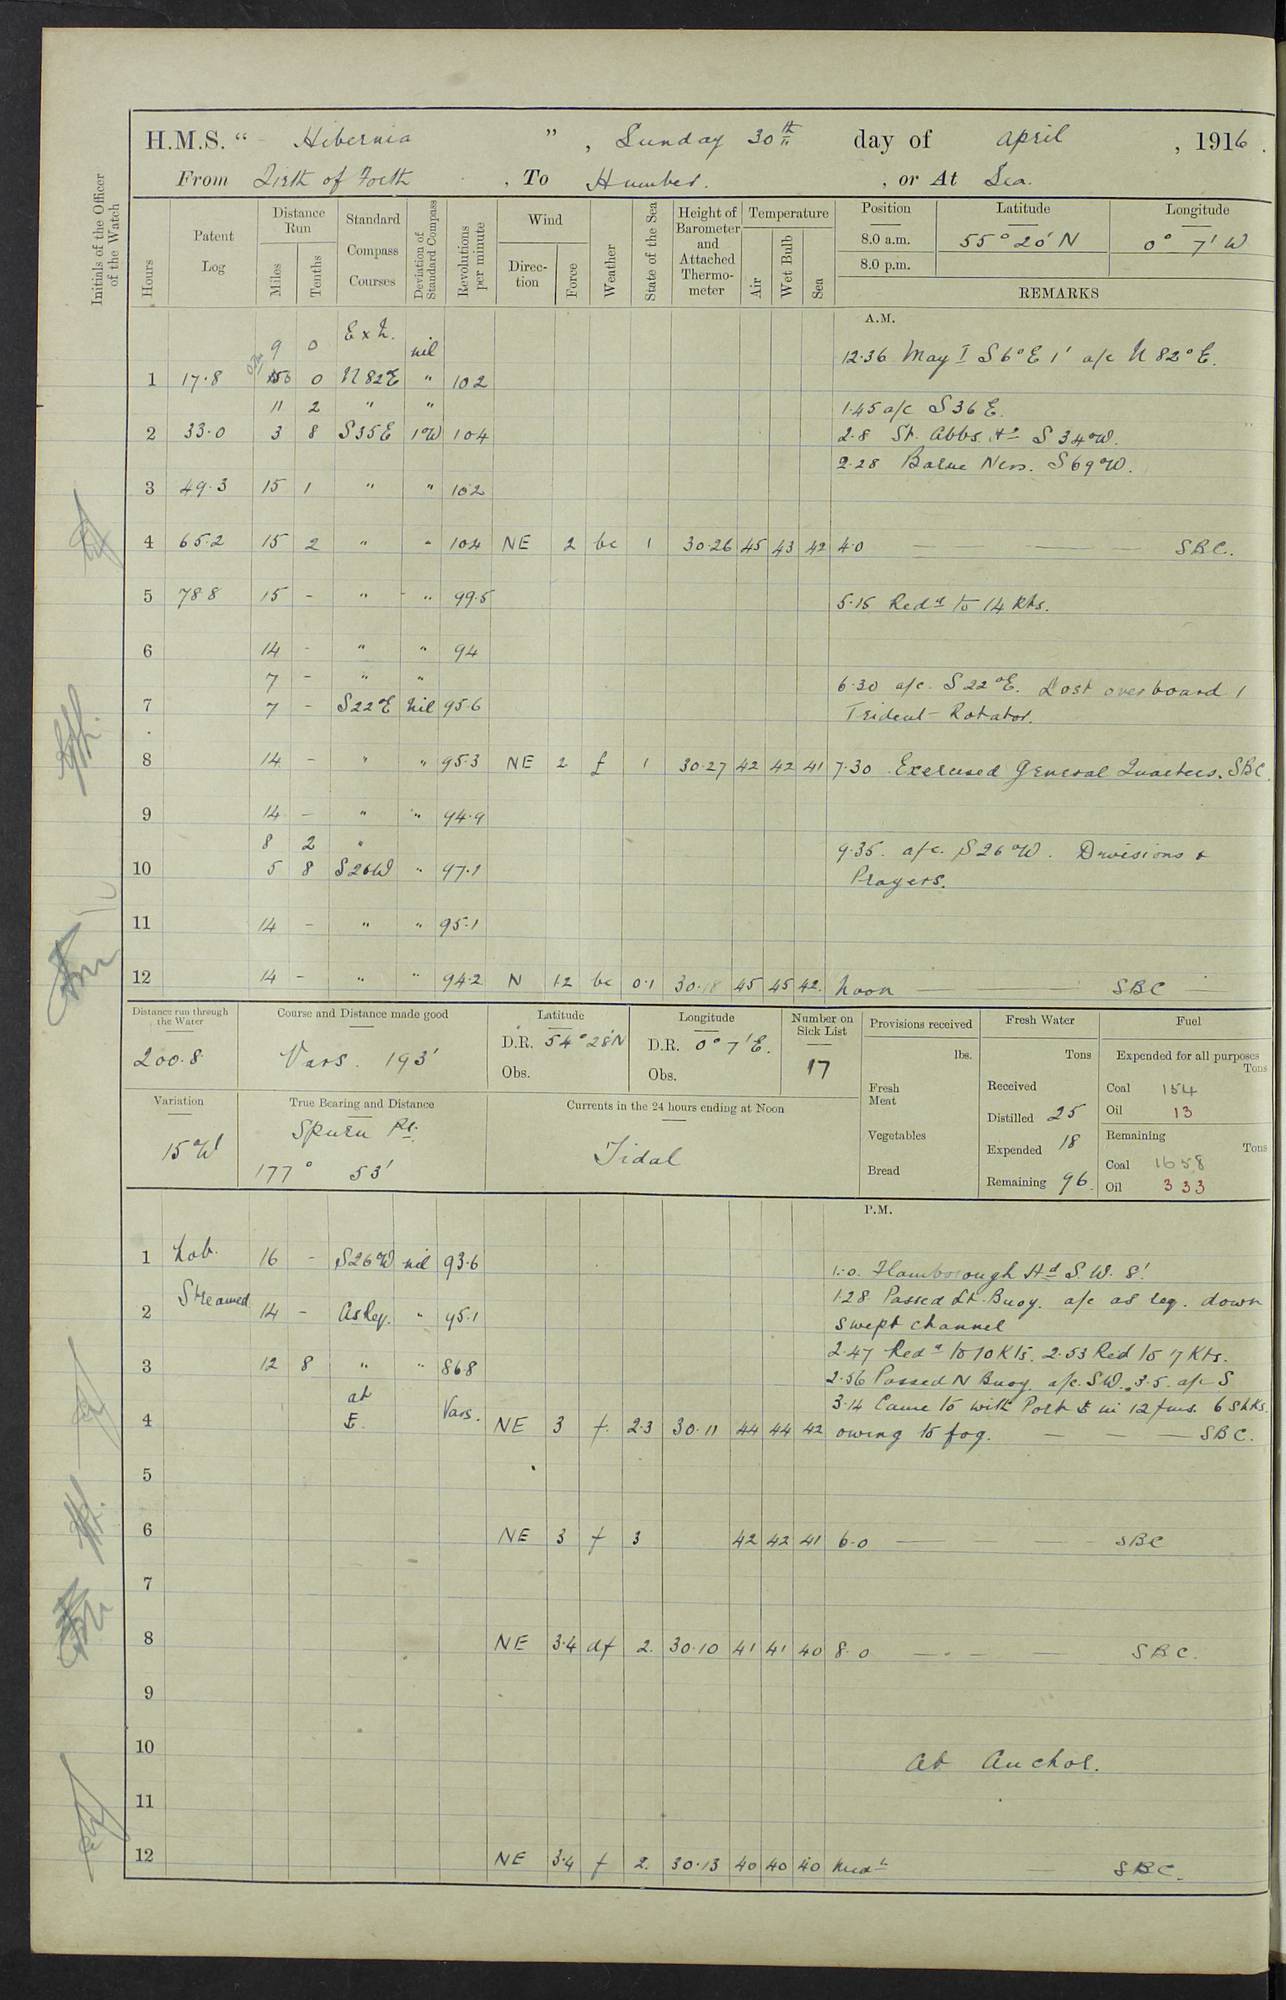 H.M.S. " Hibernia ", Sunday 30th day of April, 1916.
From Firth of Forth, To Humber., or At Sea.
Initials of the Officer of the Watch
Hours Patent Log Distance Run Miles Tenths Standard Compass Courses Deviation of Standard Compass Revolutions per minute Wind Direction Force Weather State of the Sea Height of Barometer and Attached Thermometer Temperature Air Wet Bulb Sea Position Latitude Longitude
8.0 a.m. 55° 20' N 0° 7' W
8.0 p.m.
REMARKS
A.M.
9 0 nil
12.36 May I S 6° E 1' a/c N 82° E.
1 17.8 0 N 82 E " 102
11 2 " " 1.45 a/c S 36 E.
2 33.0 3 8 S35E 1°W 104 2.8 St. Abbs Hd S 34°W.
2.28 Barne Ness. S69°W.
3 49.3 15 1 " " 102
4 65.2 15 2 " " 104 NE 2 bc 1 30.26 45 43 42 4.0 — — — SBC.
5 78.8 15 - " " 99.5
5.15 Redd to 14 Kts.
6 14 - " " 94
7 - " " 6.30 a/c. S22°E. Lost overboard 1
7 7 - S22°E nil 95.6 Trident Rotator.
8 14 - " " 95.3 NE 2 f 1 30.27 42 42 41 7.30 Exercised General Quarters. SBC.
9 14 - " " 94.9
8 2 " 9.35. a/c. S26°W. Divisions &
10 5 8 S26W " 97.1 Prayers.
11 14 - " " 95.1
12 14 - " " 94.2 N 12 bc 0.1 30.18 45 45 42. Noon — — SBC
Distance run through the Water 200.8
Course and Distance made good Vars. 193'
Latitude D.R. 54° 28' N Obs.
Longitude D.R. 0° 7' E. Obs.
Number on Sick List 17
Provisions received lbs. Fresh Meat Vegetables Bread
Fresh Water Tons Received Distilled 25 Expended 18 Remaining 96.
Fuel Expended for all purposes Tons Coal 154 Oil 13 Remaining Tons Coal 1658 Oil 333
Variation 15°W
True Bearing and Distance Spurn Pt. 177° 53'
Currents in the 24 hours ending at Noon Tidal
P.M.
1 not 16 - S26°W nil 93.6 1.0. Flamborough Hd S.W. 8'.
Streamed 1.28 Passed Lt. Buoy. a/c as req. down
2 14 - As Req. " 95.1 swept channel
2.47 Redd to 10 Kts. 2.53 Red to 7 Kts.
3 12 8 " " 86.8 2.56 Passed N Buoy. a/c. SW. 3.5. a/c S
at Vars. 3.14 Came to with Port ⚓ in 12 fms. 6 shks.
4 ⚓. NE 3 f. 2.3 30.11 44 44 42 owing to fog. — — — SBC.
5
6 NE 3 f 3 42 42 41 6.0 — — — SBC
7
8 NE 3.4 df 2. 30.10 41 41 40 8.0 — — — SBC.
9
10 At Anchor.
11
12 NE 3.4 f 2. 30.13 40 40 40 Midt — SBC.